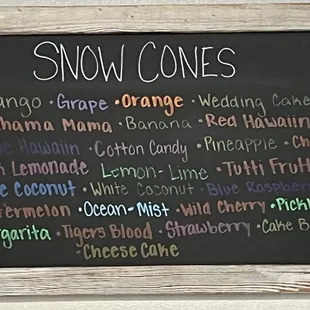 SNOW CONES
ango · Grape · Orange · Wedding Cake
hama Mama · Banana · Red Hawaiin
e Hawaiin · Cotton Candy · Pineapple · Ch
Lemonade · Lemon-Lime · Tutti Frutt
e Coconut · White Coconut · Blue Raspberr
termelon · Ocean-Mist · Wild Cherry · Pickl
garita · Tigers Blood · Strawberry · Cake B
· Cheese Cake